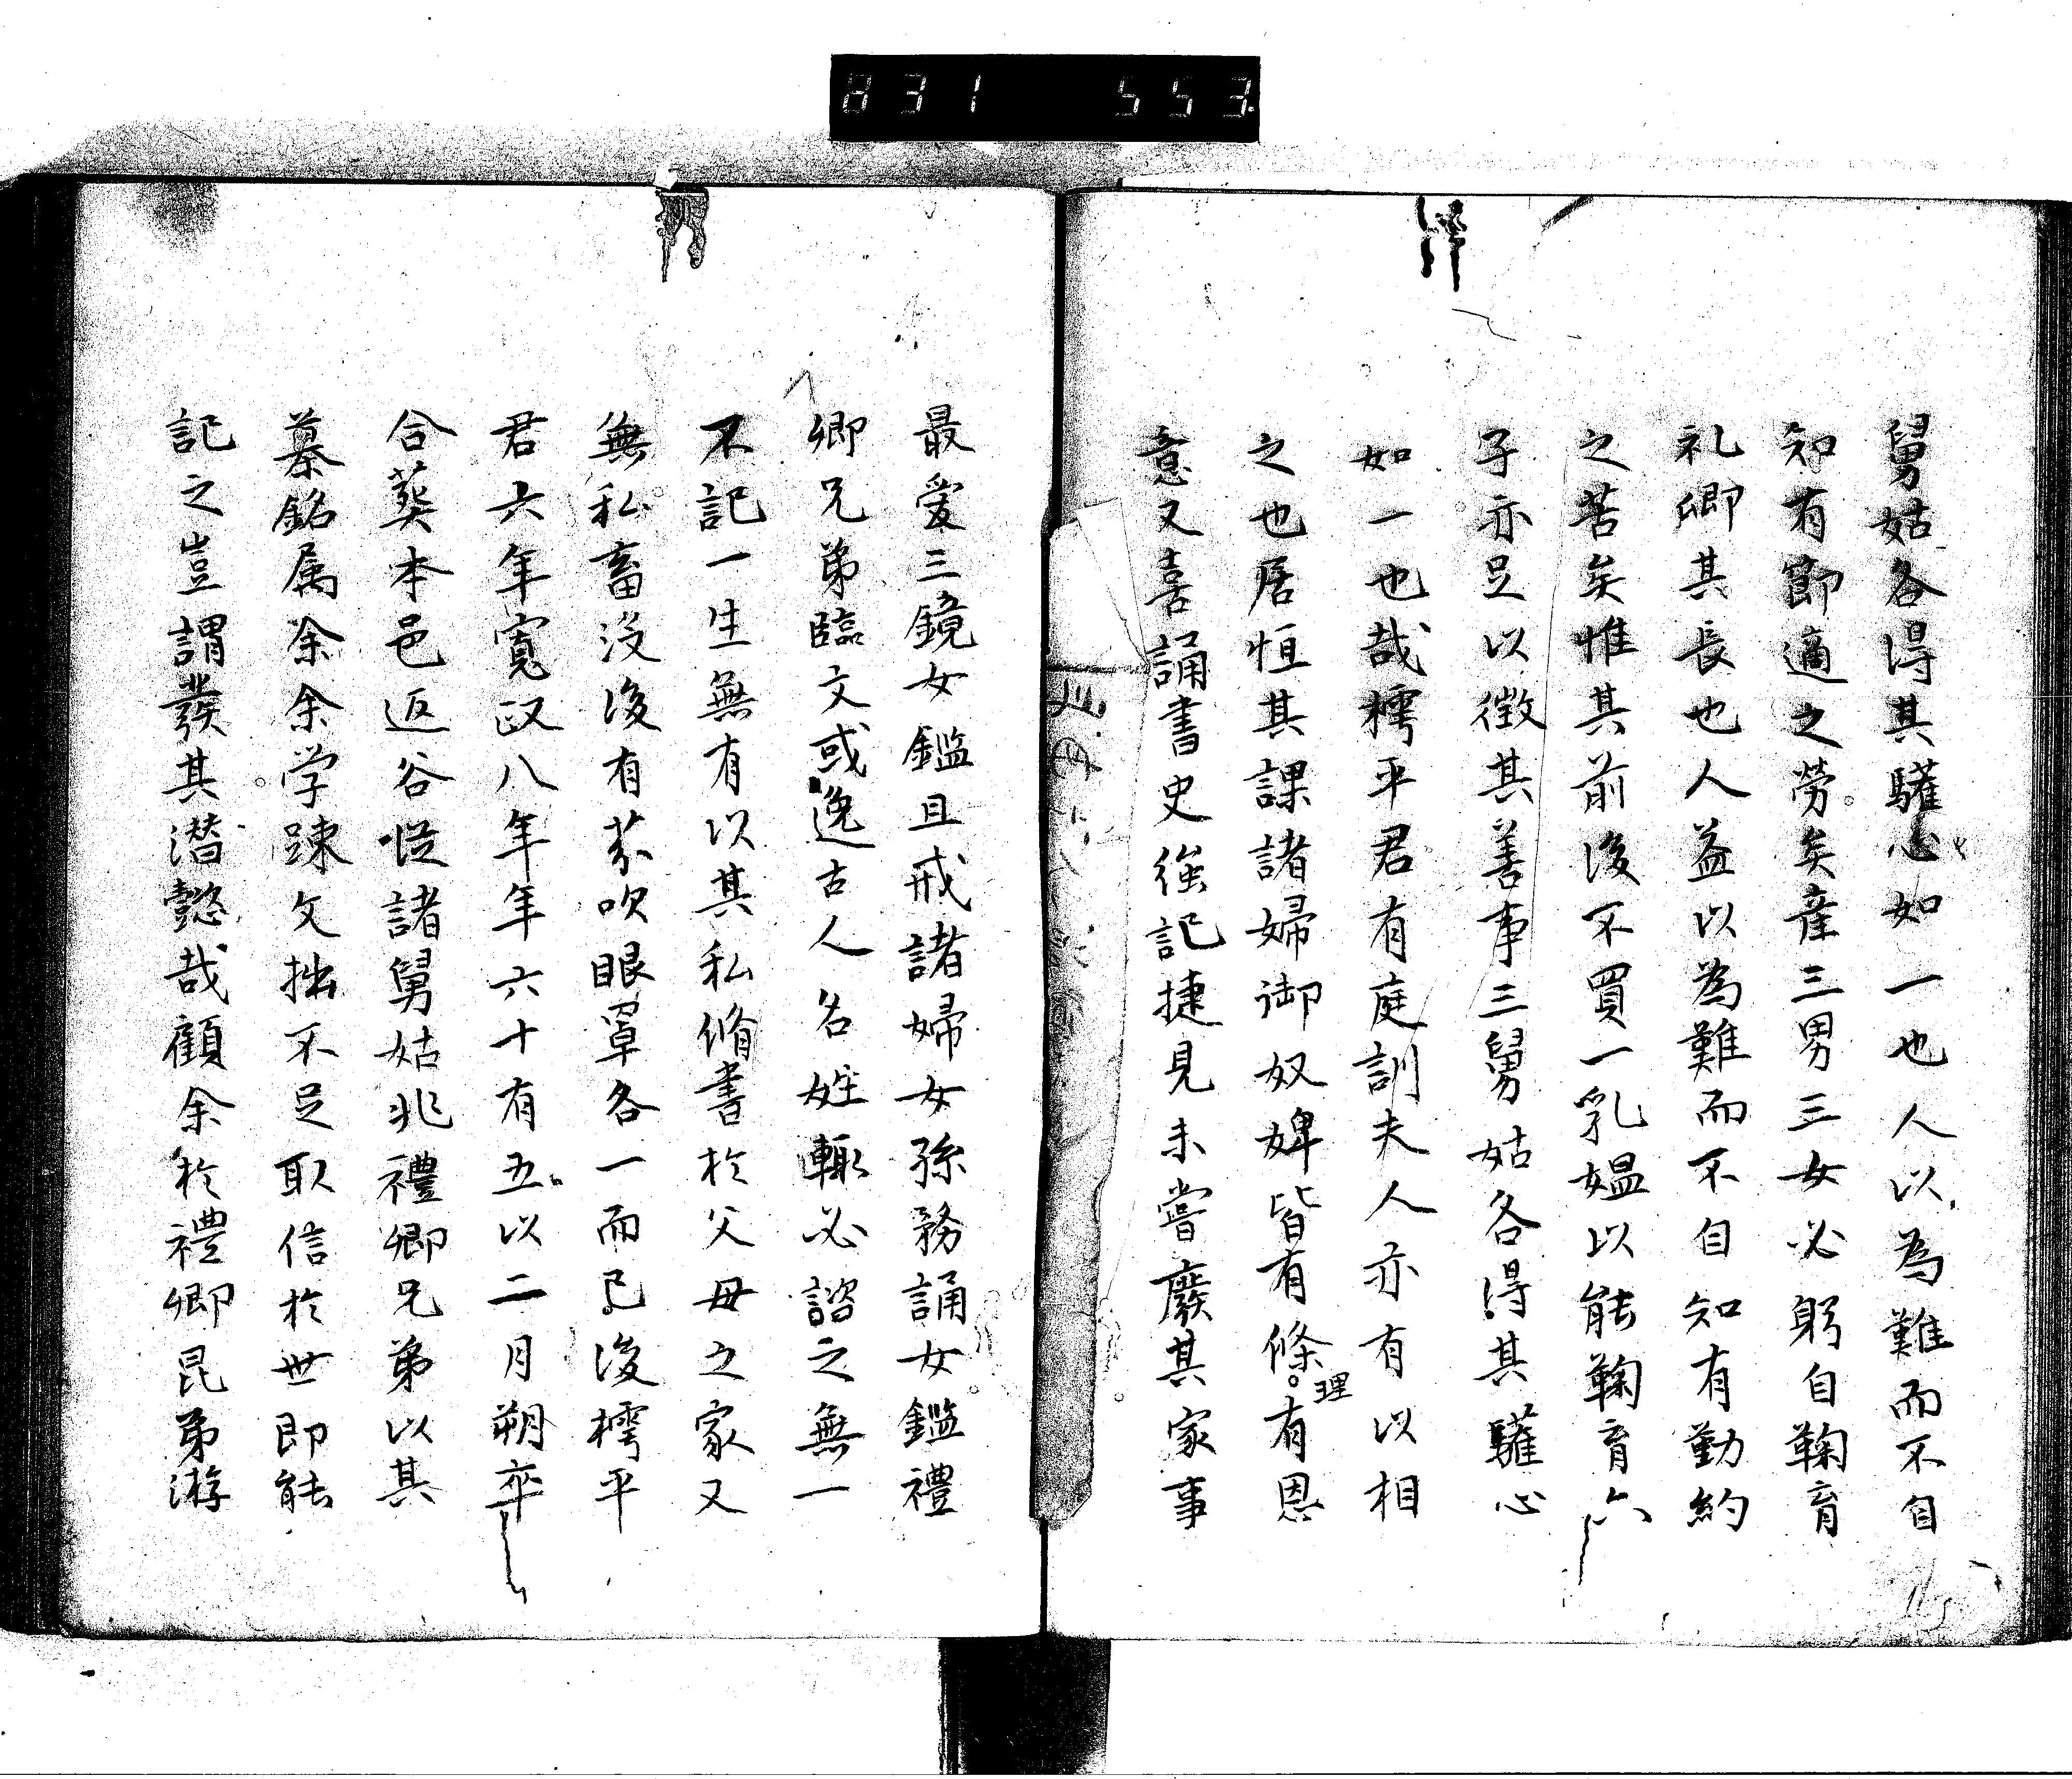 831 553
舅姑各得其驩心如一也人以為難而不自
知有節適之勞矣産三男三女必躬自鞠育
礼卿其長也人益以為難而不自知有勤約
之苦矣惟其前後不買一乳媼以能鞠育六
子亦足以徴其善事三舅姑各得其驩心
如一也哉樗平君有庭訓夫人亦有以相
之也居恒其課諸婦御奴婢皆有條理有恩
意又喜誦書史強記捷見未嘗廢其家事
最愛三鏡女鑑且戒諸婦女孫務誦女鑑禮
卿兄弟臨文或逸古人名姓輙必諮之無一
不記一生無有以其私脩書於父母之家又
無私畜没後有茶吹眼罩各一而已後樗平
君六年寛政八年年六十有五以二月朔卒
合葬本邑返谷従諸舅姑兆禮卿兄弟以其
墓銘属余余学踈文拙不足取信於世即能
記之豈謂發其潜懿哉顧余於禮卿昆弟游